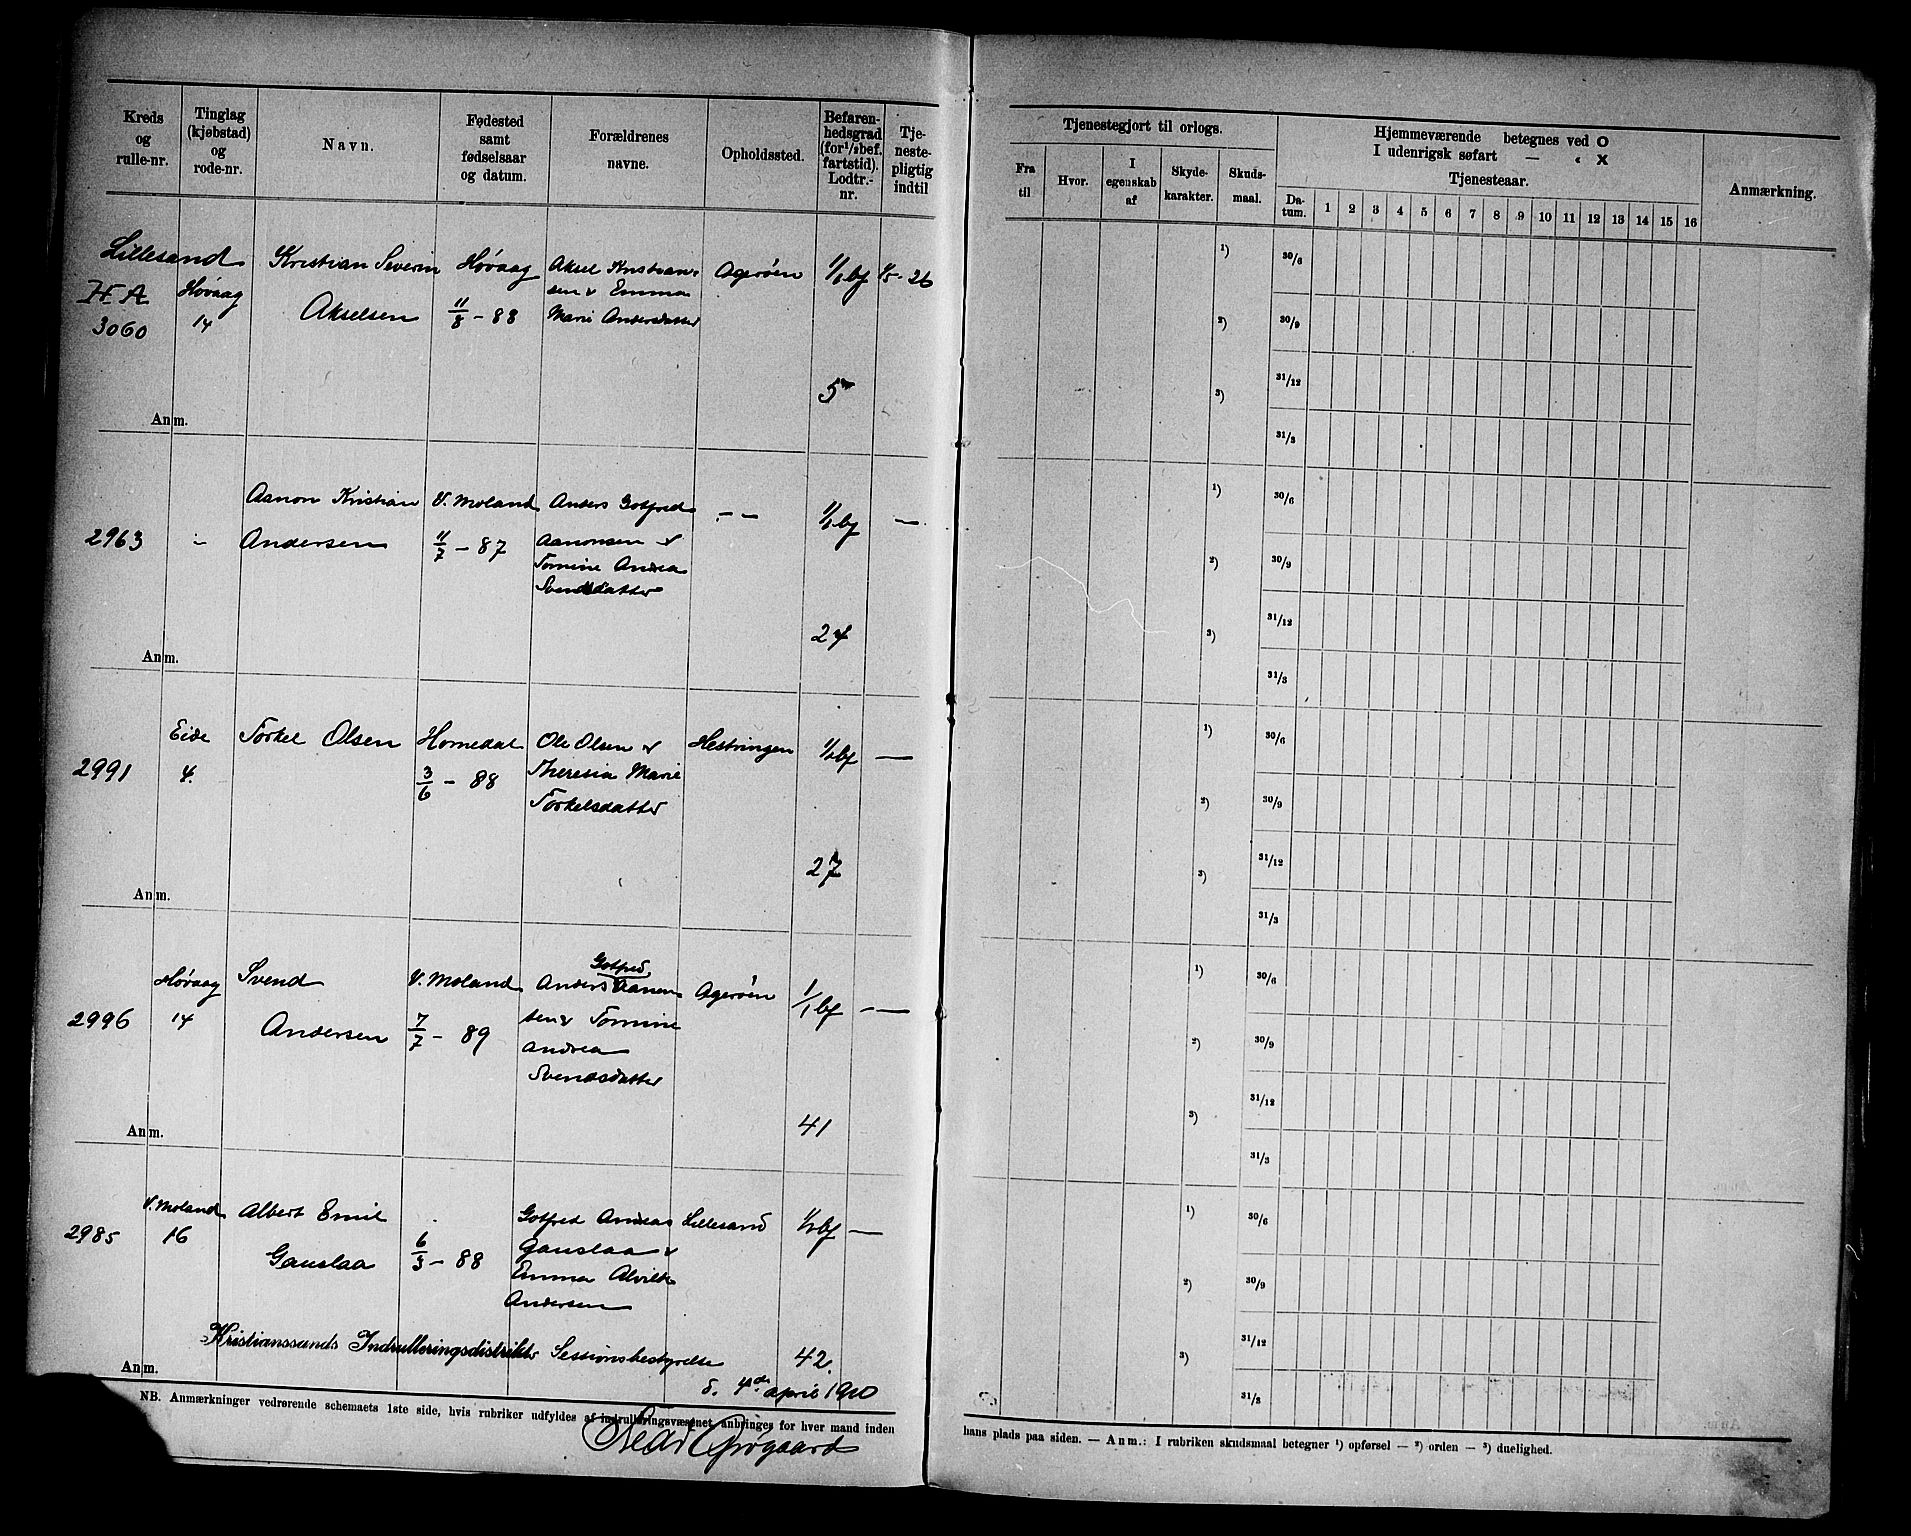 Kreds
og
rulle-nr.
Tinglag
(kjøbstad)
og
rode-nr.
Navn.
Fødested
samt
fødselsaar
og datum.
Forældrenes
navne.
Opholdssted.
Befaren-
hedsgrad
(for 1/2 bef.
fartstid).
Lodtr.-
nr.
Tje-
neste-
pligtig
indtil
Lillesand
H A
3060
Høvaag
14
Kristian Severin
Akselsen
Høvaag
11/8 - 88
Aksel Kristian-
sen & Emma
Marie Andersdatter
Agerøen
1/1 bf
1/5 - 26
5
Anm.
2963
Aanon Kristian
Andersen
V. Moland
11/7 - 87
Anders Gotfred
Aanonsen &
Tomine Andrea
Svendsdatter
— —
1/1 bf
—
24
Anm.
2991
Eide
4.
Torkel Olsen
Homedal
3/6 - 88
Ole Olsen &
Theresia Marie
Torkelsdatter
Hestringen
1/1 bf
—
27
Anm.
2996
Høvaag
14
Svend
Andersen
V. Moland
7/7 - 89
Gotfred
Anders Aanon
sen & Tomine
Andrea
Svendsdatter
Agerøen
1/1 bf
— —
41
Anm.
2985
V. Moland
16
Albert Emil
Gauslaa
6/3 - 88
Gotfred Andreas
Gauslaa &
Emma Alvilde
Andersen
Lillesand
1/1 bf
—
Kristianssands Indrulleringsdistrikts Sessionsbestyrelse
42.
Anm.
d. 4de april 1910
NB. Anmærkninger vedrørende schemaets 1ste side, hvis rubriker udfyldes af indrulleringsvæsenet, anbringes for hver mand inden
Grøgaard
Tjenestegjort til orlogs.
Fra
til
Hvor.
I
egenskab
af
Skyde-
karakter.
Skuds-
maal.
Hjemmeværende betegnes ved O
I udenrigsk søfart — « X
Tjenesteaar.
Da-
tum.
1 2 3 4 5 6 7 8 9 10 11 12 13 14 15 16
Anmærkning.
1) 30/6
2) 30/9
3) 31/12
31/3
1) 30/6
2) 30/9
3) 31/12
31/3
1) 30/6
2) 30/9
3) 31/12
31/3
1) 30/6
2) 30/9
3) 31/12
31/3
1) 30/6
2) 30/9
3) 31/12
31/3
hans plads paa siden. — Anm.: I rubriken skudsmaal betegner 1) opførsel — 2) orden — 3) duelighed.